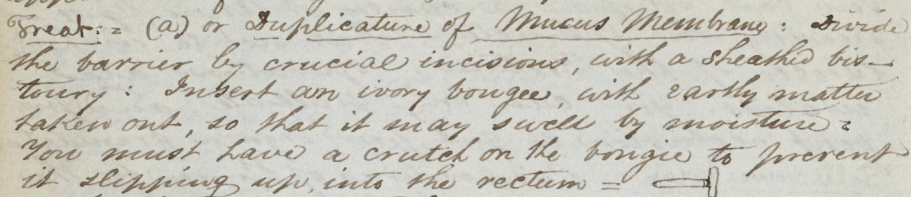 Treat: = (a) or Duplicature of Mucus Membrane: Divide
the barrier by crucial incisions, with a sheathed bis-
toury: Insert an ivory bougee, with earthy matter
taken out, so that it may swell by moisture =
You must have a crutch on the bougie to prevent
it slipping up, into the rectum =